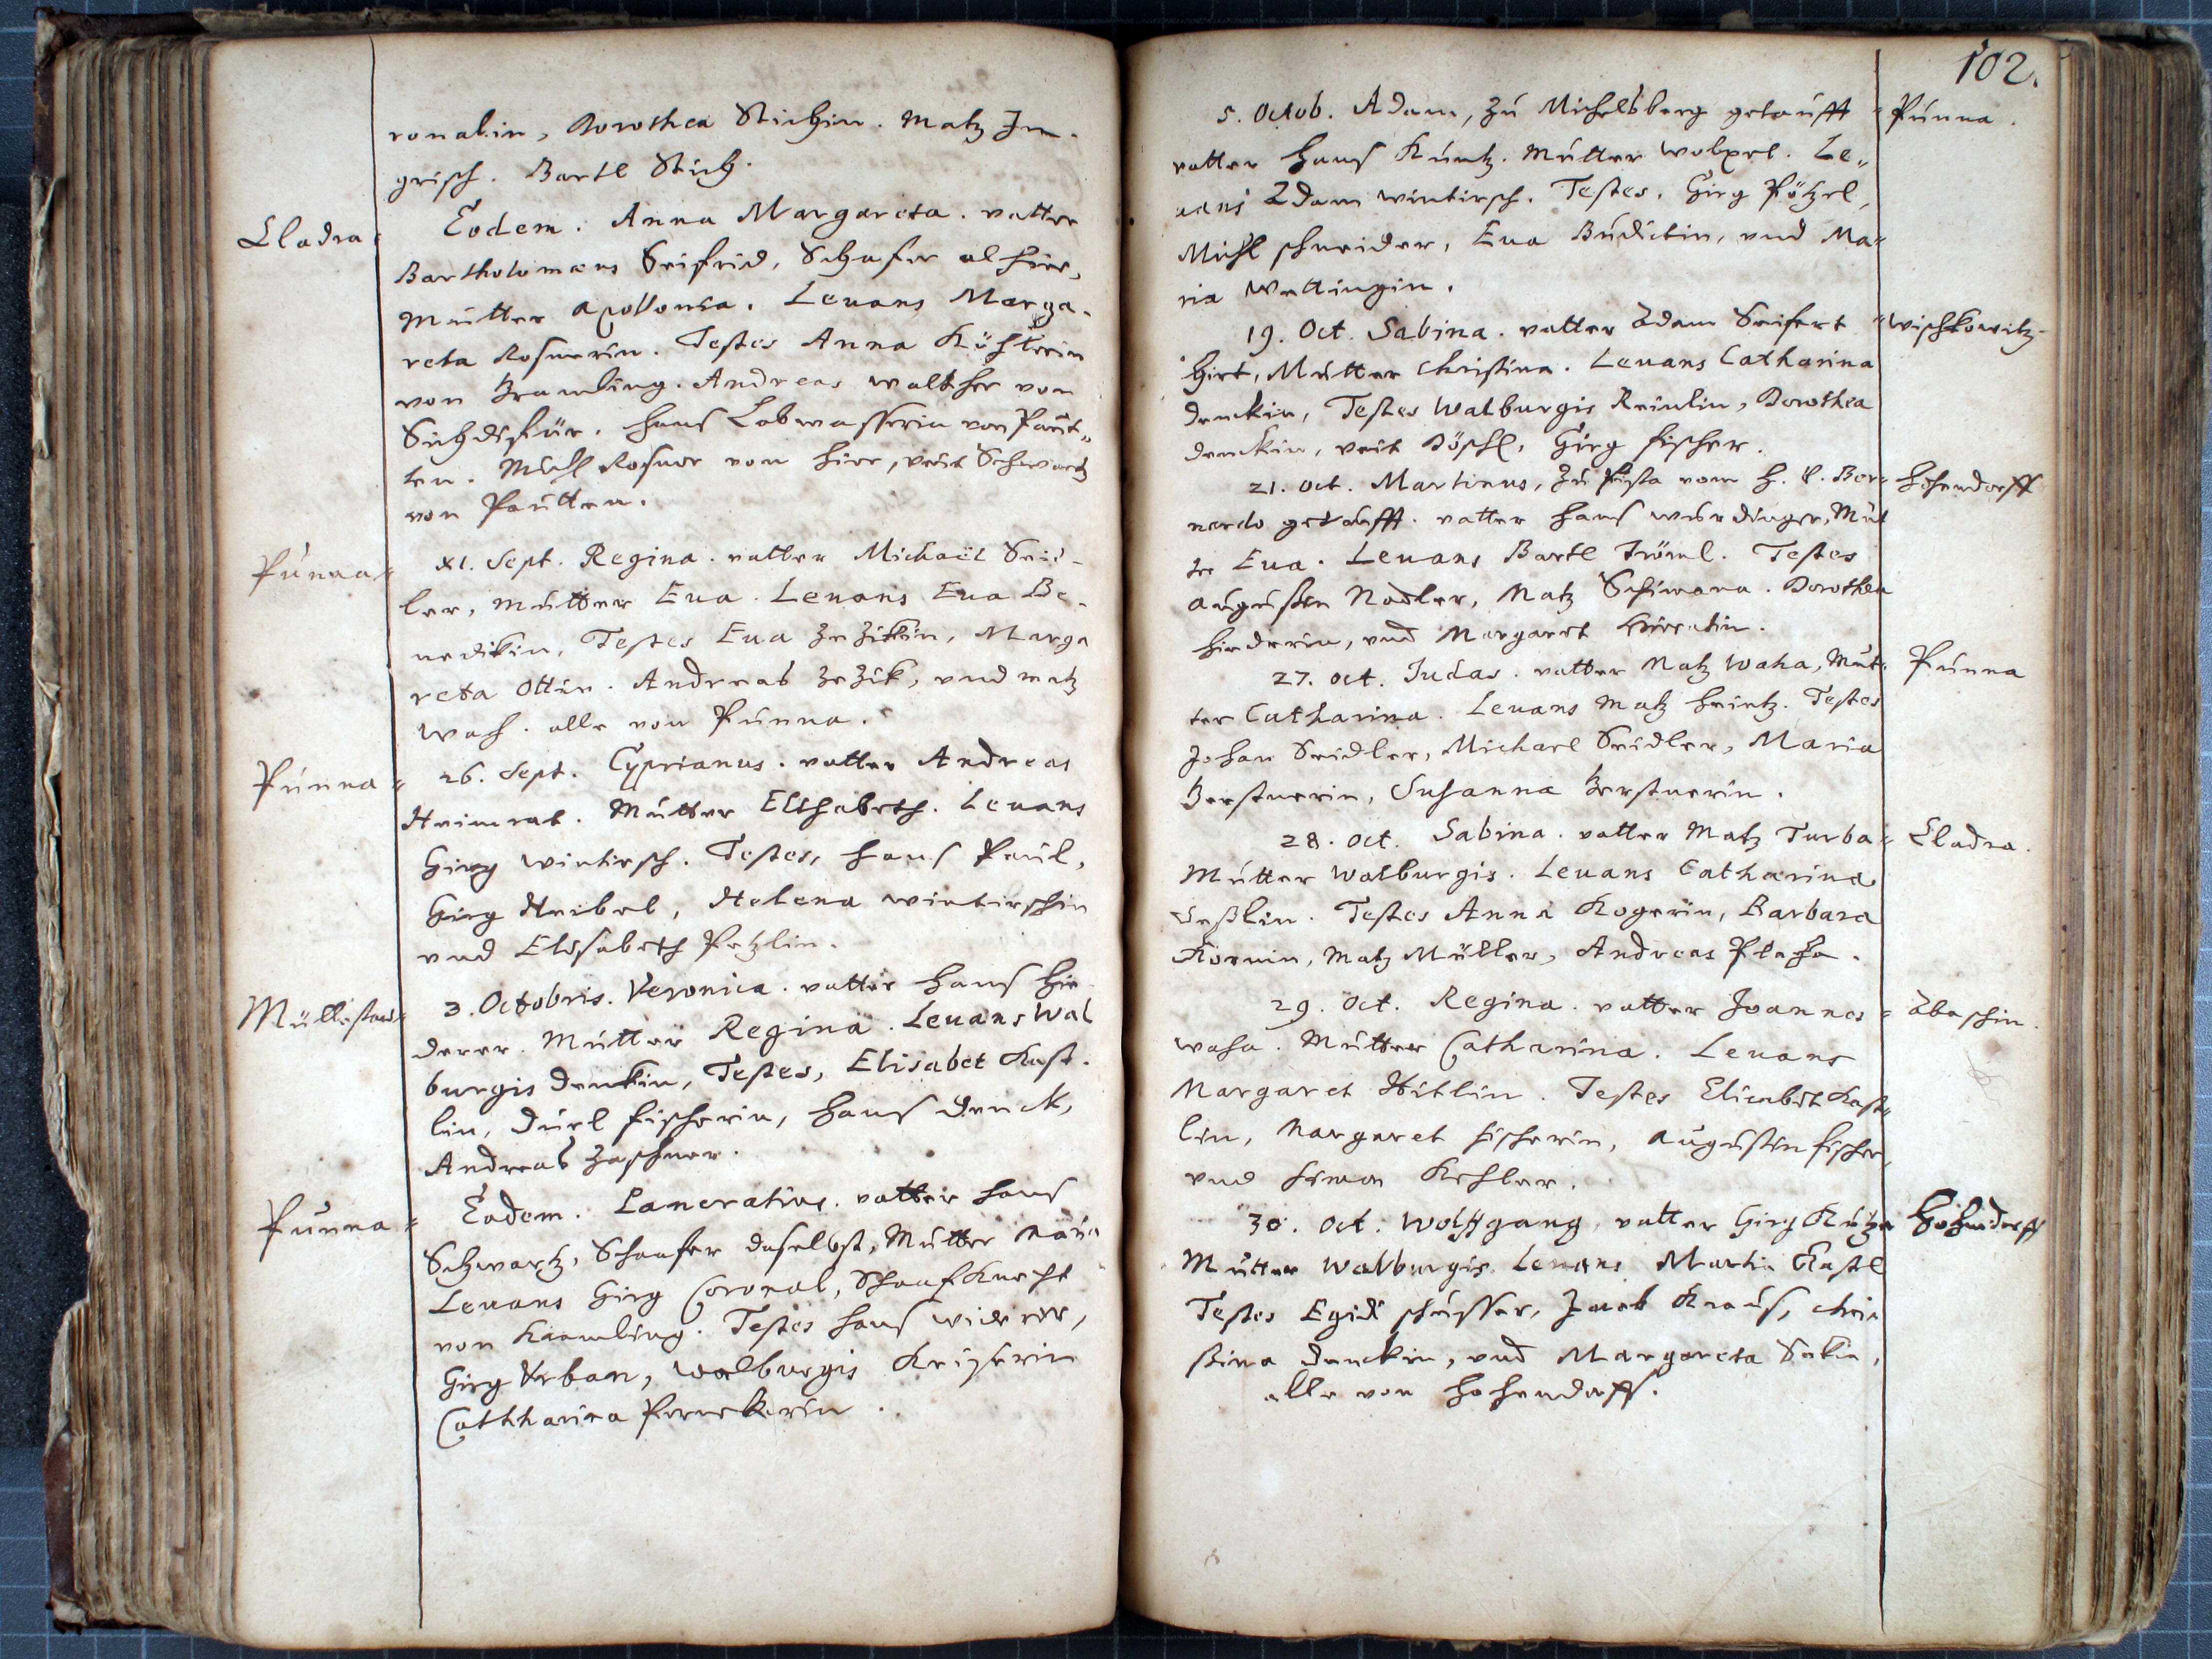 ronalin, Dorothea Stichin. Matz Im-
grisch. Bartl Stich.
Lladra
Eodem. Anna Margareta. vatter
Bartholomaeus Seifrid, Schafer alhier,
Mutter Apollonia. Leuans Marga-
reta Rosnerin. Testes Anna Köhlerin
von Kramling. Andreas Walther von
hans Lobwasserin von Paut-
ten. Michl Rosner von hier, veit Schwartz
von Pautten.
Punna
21. Sept. Regina. vatter Michaël Seid-
ler, Mutter Eua. Leuans Eua Be-
nedikin, Testes Eua Zezikin, Marga
reta Ottin. Andreas Zezik, vnd matz
Wah. alle von Punna.
Punna
26. Sept. Cyprianus. vatter Andreas
Heimrat. Mutter Elisabeth. Leuans
Girg Wintirsch. Testes, hans Paul,
Girg Heibel, Helena Wintirschin
vnd Elisabeth Petzlin.
Müllestau
3. Octobris. Veronica. vatter hans Hie
derer. Mutter Regina. Leuans Wal
burgis Denkin, Testes, Elisabet Kast-
lin, Durl fischerin, hans Denck,
Andreas Zaschner.
Punna
Eodem. Pancratius. vatter hans
Schwartz, Schaafer daselbst, Mutter Maria
Leuans Girg Coronal, Schaafknecht
von Kramling. Testes hans widerer,
Girg Vrban, Walburgis
Cathharina Perneckerin.
102.
5. Octob. Adam, zu Michelsberg getaufft
Punna.
vatter hans Kuntz. Mutter Wolperl. Le-
uans Adam Wintirsch. Testes, Girg Pötzel,
Michl schneider, Eua vnd Ma-
ria Wettingin.
19. Oct. Sabina. vatter Adam Seifert
Wischkowitz
Hirt, Mutter Christina. Leuans Catharina
Denckin, Testes Walburgis Reinlin, Dorothea
Denckin, veit Döschl, Girg fischer.
21. Oct. Martinus, zu vom H. P. Ber-
Hohendorff
nardo getaufft. vatter hans Würdinger, Mut
ter Eua. Leuans Bartl Tröml. Testes
Augustin Nadler, Matz Schiwana. Dorothea
Hiederin, vnd Margaret
27. Oct. Judas. vatter Matz Waha, Mut-
Punna
ter Catharina. Leuans Matz Heintz. Testes
Johan Seidler, Michael Seidler, Maria
Berstnerin, Susanna Berstnerin.
28. Oct. Sabina. vatter Matz Turba
Lladra.
Mutter Walburgis. Leuans Catharina
Testes Anna Kogerin, Barbara
Kornin, Matz Müller, Andreas Plaha.
29. Oct. Regina. vatter Joannes
Abaschin.
Waha. Mutter Catharina. Leuans
Margaret Hitlin. Testes Elisabet Kast-
lin, Margaret fischerin, Augustin fischer,
vnd Simon Keßler.
30. Oct. Wolffgang, vatter Girg
Hohendorff
Mutter Walburgis. Leuans Martin Gastl
Testes Egidi schusser, Jacob Kraus, Chri
stina Denckin, vnd Margareta
alle von Hohendorff.